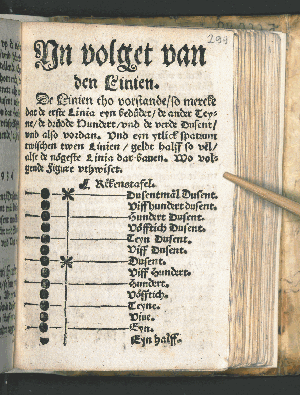 294
Yn volget van
den Linien.
De Linien tho vorstande / so mercke
dat de erste Linia eyn bedüdet / de ander Tey-
ne / de drüdde Hundert / vnd de verde Dusent /
vnd also vordan. Vnd eyn ytlick spatium
twischen twen Linien / geldt halff so vel /
alse de negeste Linia dar bauen. Wo vol-
gende Figure vthwiset.
Rekenstafel.
Dusentmäl Dusent.
Viffhundert dusent.
Hundert Dusent.
Vöfftich Dusent.
Teyn Dusent.
Viff Dusent.
Dusent.
Viff Hundert.
Hundert.
Vöfftich.
Teyne.
Viue.
Eyn.
Eyn halff.